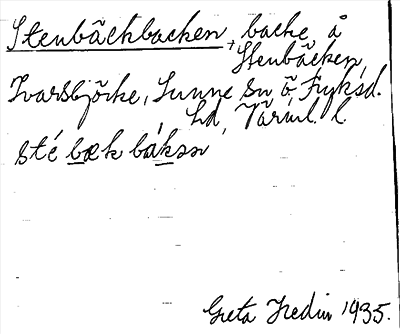 Stenbäckbacken, backe å
Stenbäcken,
Ivarsbjörke, Sunne sn ö. Fryksd.
hd, Värml. l.
sté bæk bákən
Greta Hedin 1935.